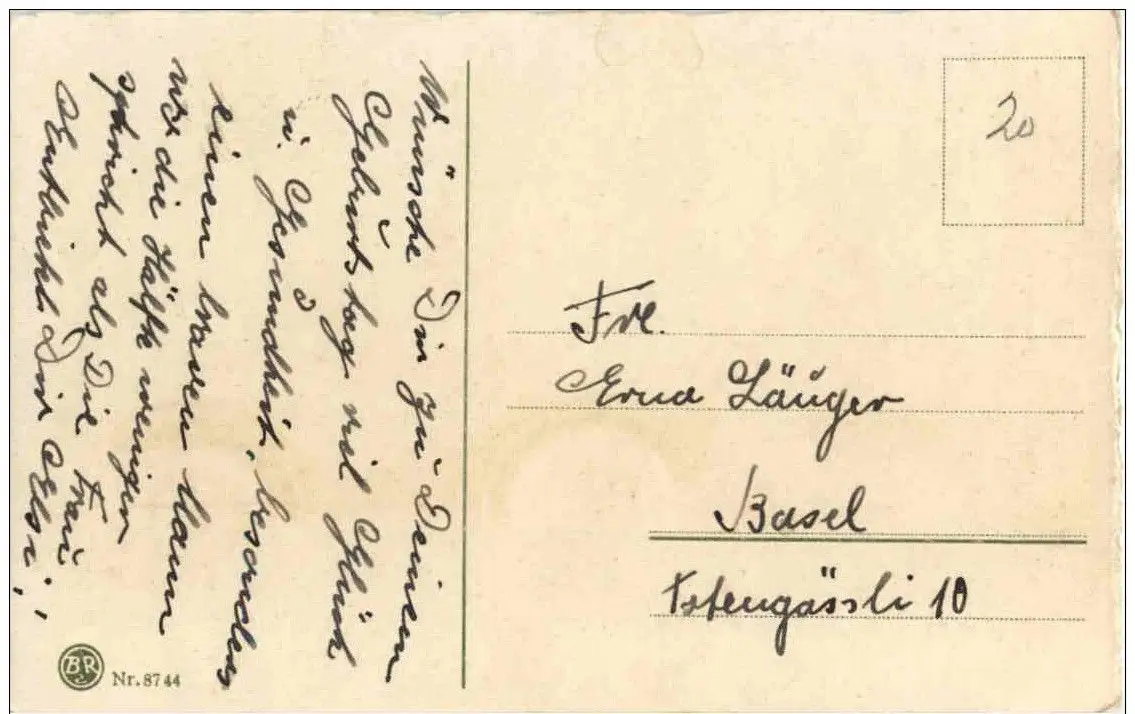 Wünsche Dir zu Deinem
Geburtstag vil Glück
u. Gesundheit, besonders
einen braven Mann
wo die Hälfte weniger
spricht als Die Frau
Entbiehtet Dir Elsi.,
20
Frl.
Erna Läuger
Basel
10
BR
Nr. 8744